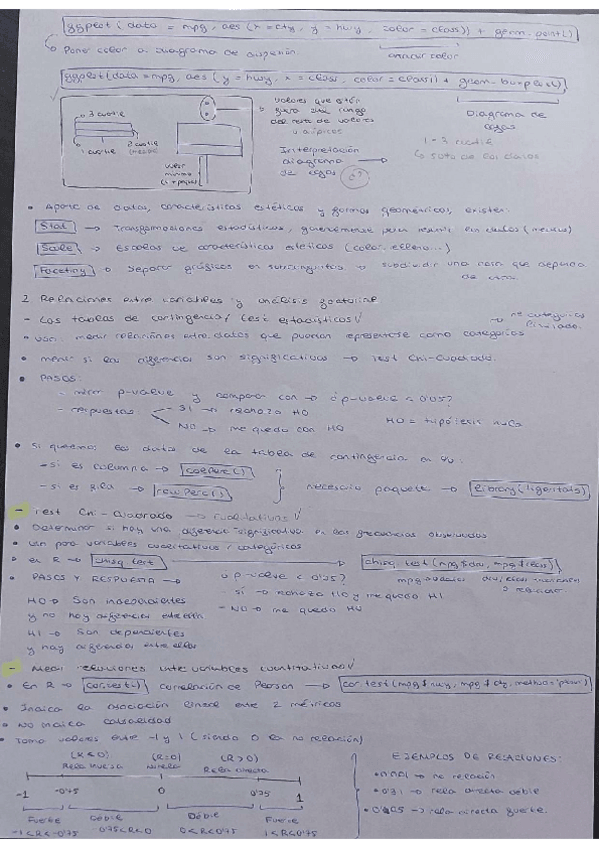 ggplot (data = mpg, aes (x = cty, y = hwy, color = class)) + geom_point()
Poner color a diagrama de dispersión. añadir color
ggplot(data = mpg, aes (y = hwy, x = class, color = class)) + geom_boxplot()
valores que están fuera del rango del resto de valores o atípicos
Diagrama de cajas
3 cuartil
1 cuartil
2 cuartil
Interpretación diagrama de cajas
1 - 3 cuartil
• Aparte de datos, características estéticas y formas geométricas, existen:
Stat → Transformaciones estadísticas, generalmente para resumir los datos (medias)
Scale → Escalas de características estéticas (color, relleno...)
Faceting → Separar gráficos en subconjuntos o subdividir una que dependa de otra.
2 Relaciones entre variables y análisis
- Las tablas de contingencia / test estadísticos
• medir relaciones entre datos que puedan representarse como categorías
• medir si las diferencias son significativas → Test Chi-Cuadrado.
• PASOS:
- mirar p-value y comparar con → ¿p-value < 0'05?
- respuestas SI → rechazo H0
NO → me quedo con H0
H0 = hipótesis nula
• Si queremos los datos de la tabla de contingencia en %:
- si es columna → colPerc()
- si es fila → rowPerc()
necesario paquete → library(tigerstats)
- Test Chi-Cuadrado → cualitativas
• Determinar si hay una diferencia significativa en las frecuencias observadas
• Un par variables cualitativas / categóricas
• en R → chisq.test → chisq.test(mpg$drv, mpg$class)
• PASOS Y RESPUESTA → ¿p-value < 0'05?
- Si → rechazo H0 y me quedo H1
- NO → me quedo H0
H0 → Son independientes
y no hay diferencia entre ellas
H1 → Son dependientes
y hay diferencia entre ellas
- Medir relaciones entre variables cuantitativas
• En R → cor.test() correlación de Pearson → cor.test(mpg$hwy, mpg$cty, method=
• Indica la asociación lineal entre 2 métricas
• NO indica causalidad
• Toma valores entre -1 y 1 (siendo 0 la no relación)
(R<0) (R=0) (R>0)
Rela inversa no rela Rela directa
-1 -0'75 0 0'75 1
Fuerte Débil Débil Fuerte
-1<R<-0'75 0'75<R<0 0<R<0'75 1<R<0'75
EJEMPLOS DE RELACIONES:
• 0'001 → no relación
• 0'31 → rela directa débil
→ rela directa fuerte